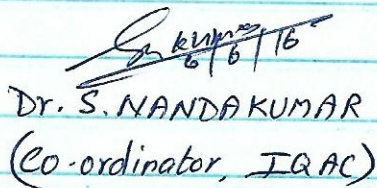 6/6/16
Dr. S. NANDAKUMAR
(Co-ordinator, IQAC)